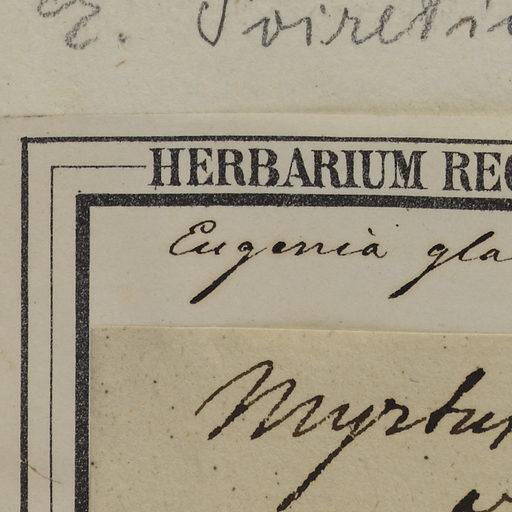 E. Poireti
HERBARIUM REG
Eugenia gla
Myrtus